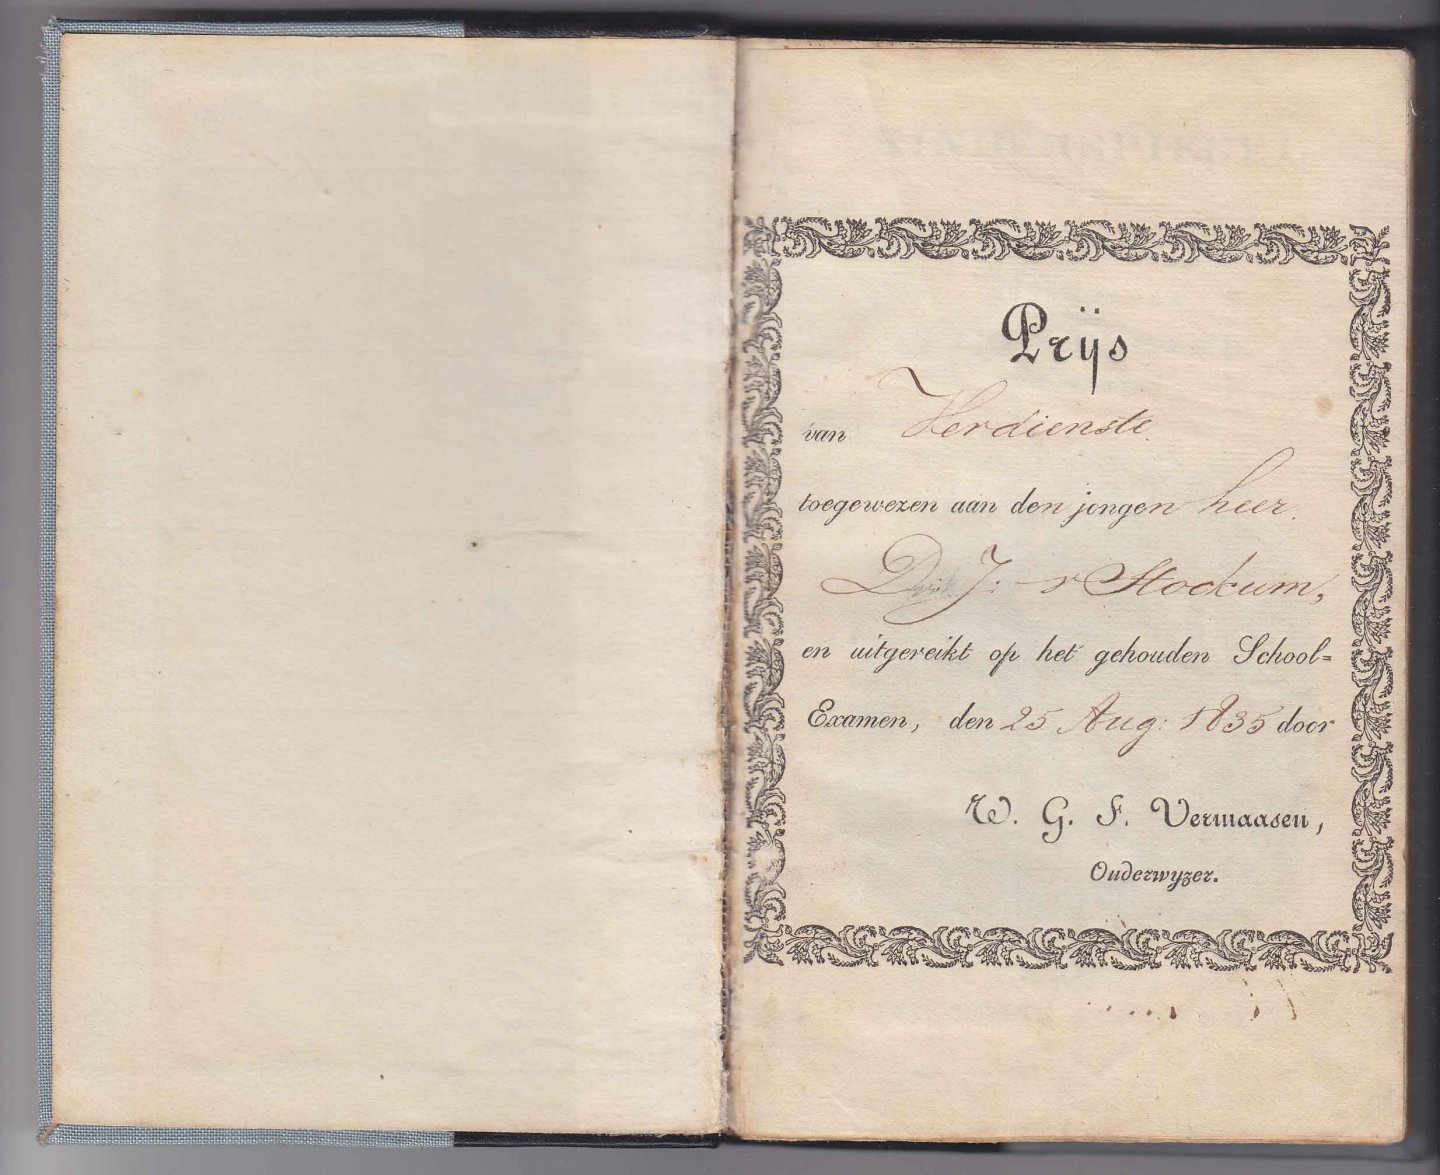 Prÿs
van Verdienste.
toegewezen aan den jongen heer.
D. J: v Stockum,
en uitgereikt op het gehouden School=
Examen, den 25 Aug: 1835 door
W. G. F. Vermaasen,
Onderwyzer.